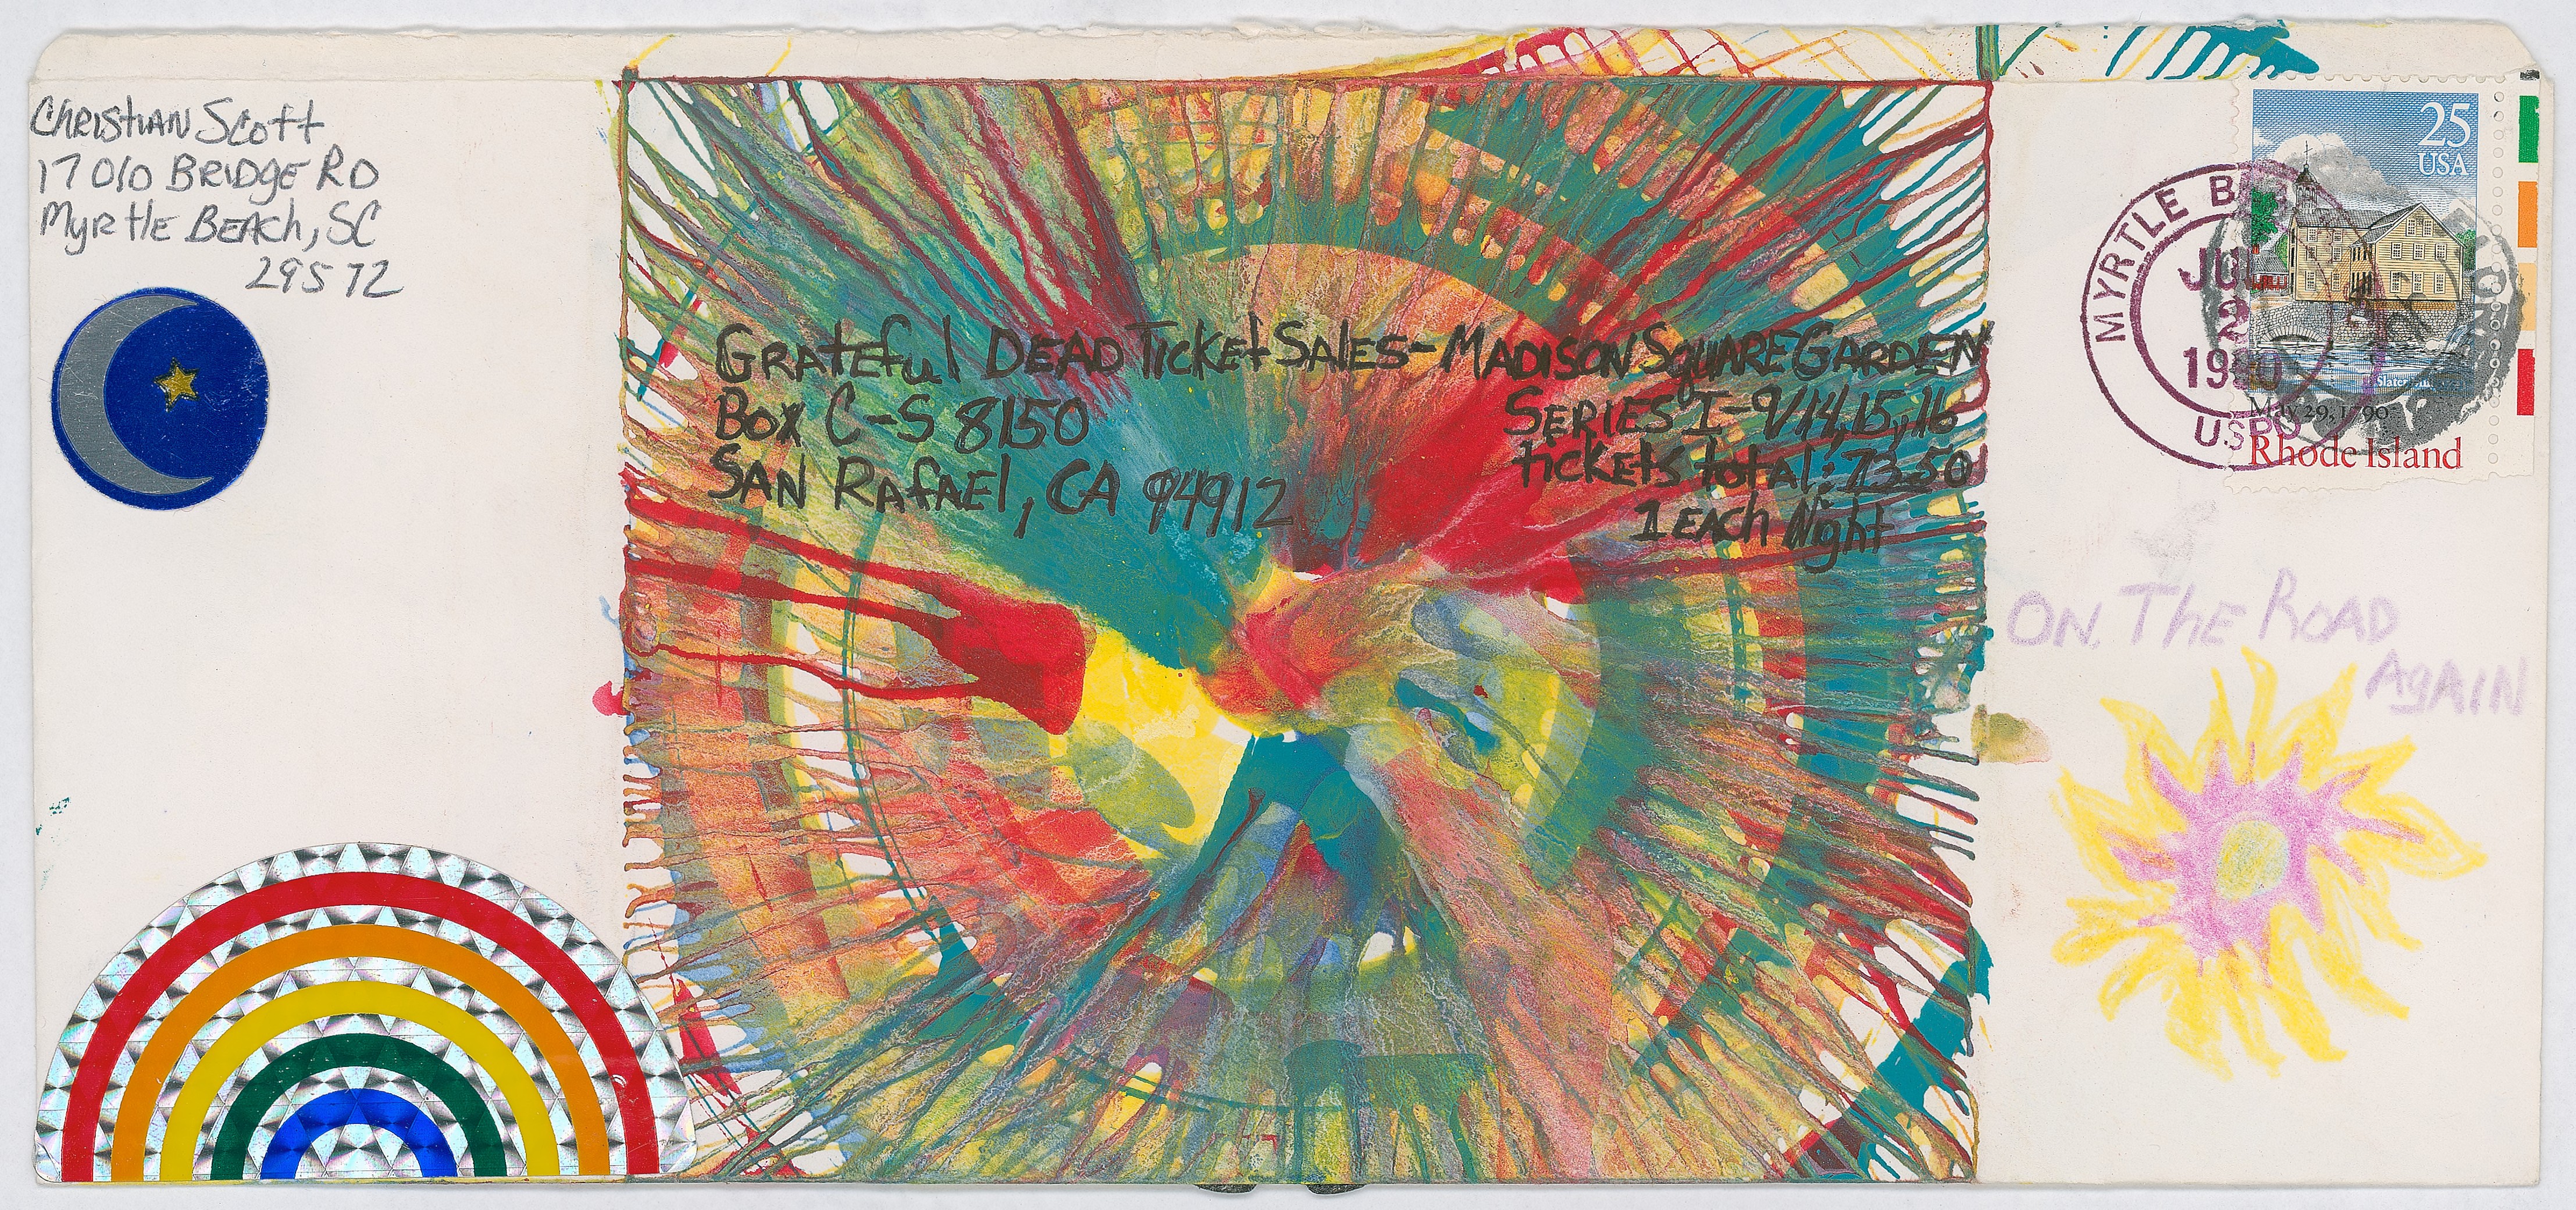 Christian Scott
17010 Bridge RD
Myrtle Beach, SC
29572
Grateful Dead Ticket Sales - Madison Square Garden
Box C-S 8150
San Rafael, CA 94912
Series I - 9/14, 15, 16
tickets total: 73.50
1 Each Night
25
USA
MYRTLE B
JUL
2
1990
USPO
Slater
May 29, 1790
Rhode Island
On The Road
Again